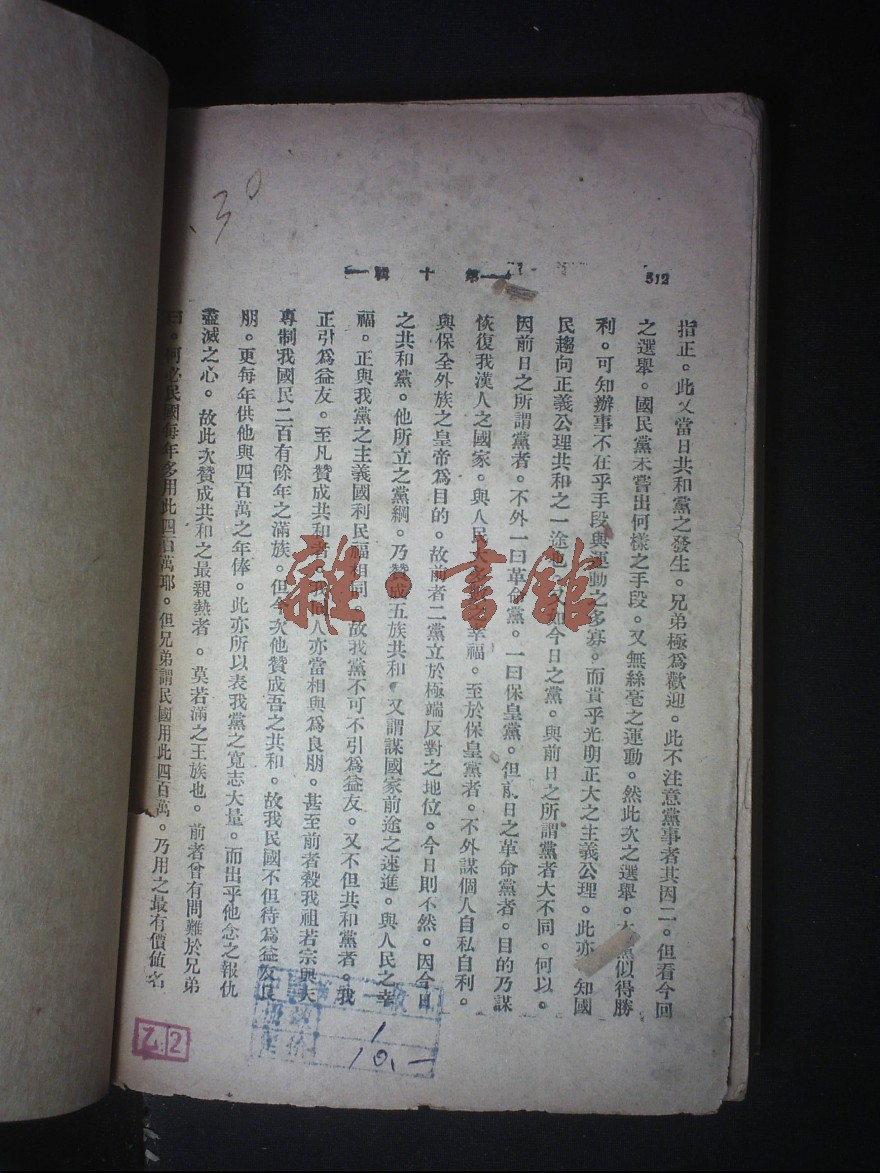 30
512
第十輯
指正。此又當日共和黨之發生。兄弟極為歡迎。此不注意黨事者其因二。但看今回
之選舉。國民黨未嘗出何樣之手段。又無絲毫之運動。然此次之選舉。黨似得勝
利。可知辦事不在乎手段與運動之多寡。而貴乎光明正大之主義公理。此亦知國
民趨向正義公理共和之一途也。又如今日之黨。與前日之所謂黨者大不同。何以。
因前日之所謂黨者。不外一曰革命黨。一曰保皇黨。但前日之革命黨者。目的乃謀
恢復我漢人之國家。與人民大幸福。至於保皇黨者。不外謀個人自私自利。
與保全外族之皇帝為目的。故前者二黨立於極端反對之地位。今日則不然。因今日
之共和黨。他所立之黨綱。乃贊成五族共和。又謂謀國家前途之速進。與人民之幸
福。正與我黨之主義國利民福相同。故我黨不可不引為益友。又不但共和黨者。我
正引為益友。至凡贊成共和者。我同人亦當相與為良朋。甚至前者殺我祖若宗與夫
專制我國民二百有餘年之滿族。但今次他贊成吾之共和。故我民國不但待為益友良
朋。更每年供他與四百萬之年俸。此亦所以表我黨之寬志大量。而出乎他念之報仇
盡滅之心。故此次贊成共和之最親熱者。莫若滿之王族也。前者曾有問難於兄弟
曰。何必民國每年多用此四百萬耶。但兄弟謂民國用此四百萬。乃用之最有價值名
雜·書館
1
10.—
乙2